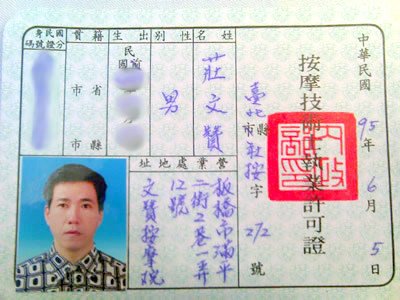 中華民國95年6月5日
按摩技術士執業許可證
臺北市縣社按字212號
姓名
莊文贊
性別
男
出生
民國前
籍貫
省市
市縣
國民身分證號碼
營業處地址
板橋市滿平
二街2巷一弄
12號
文贊按摩院